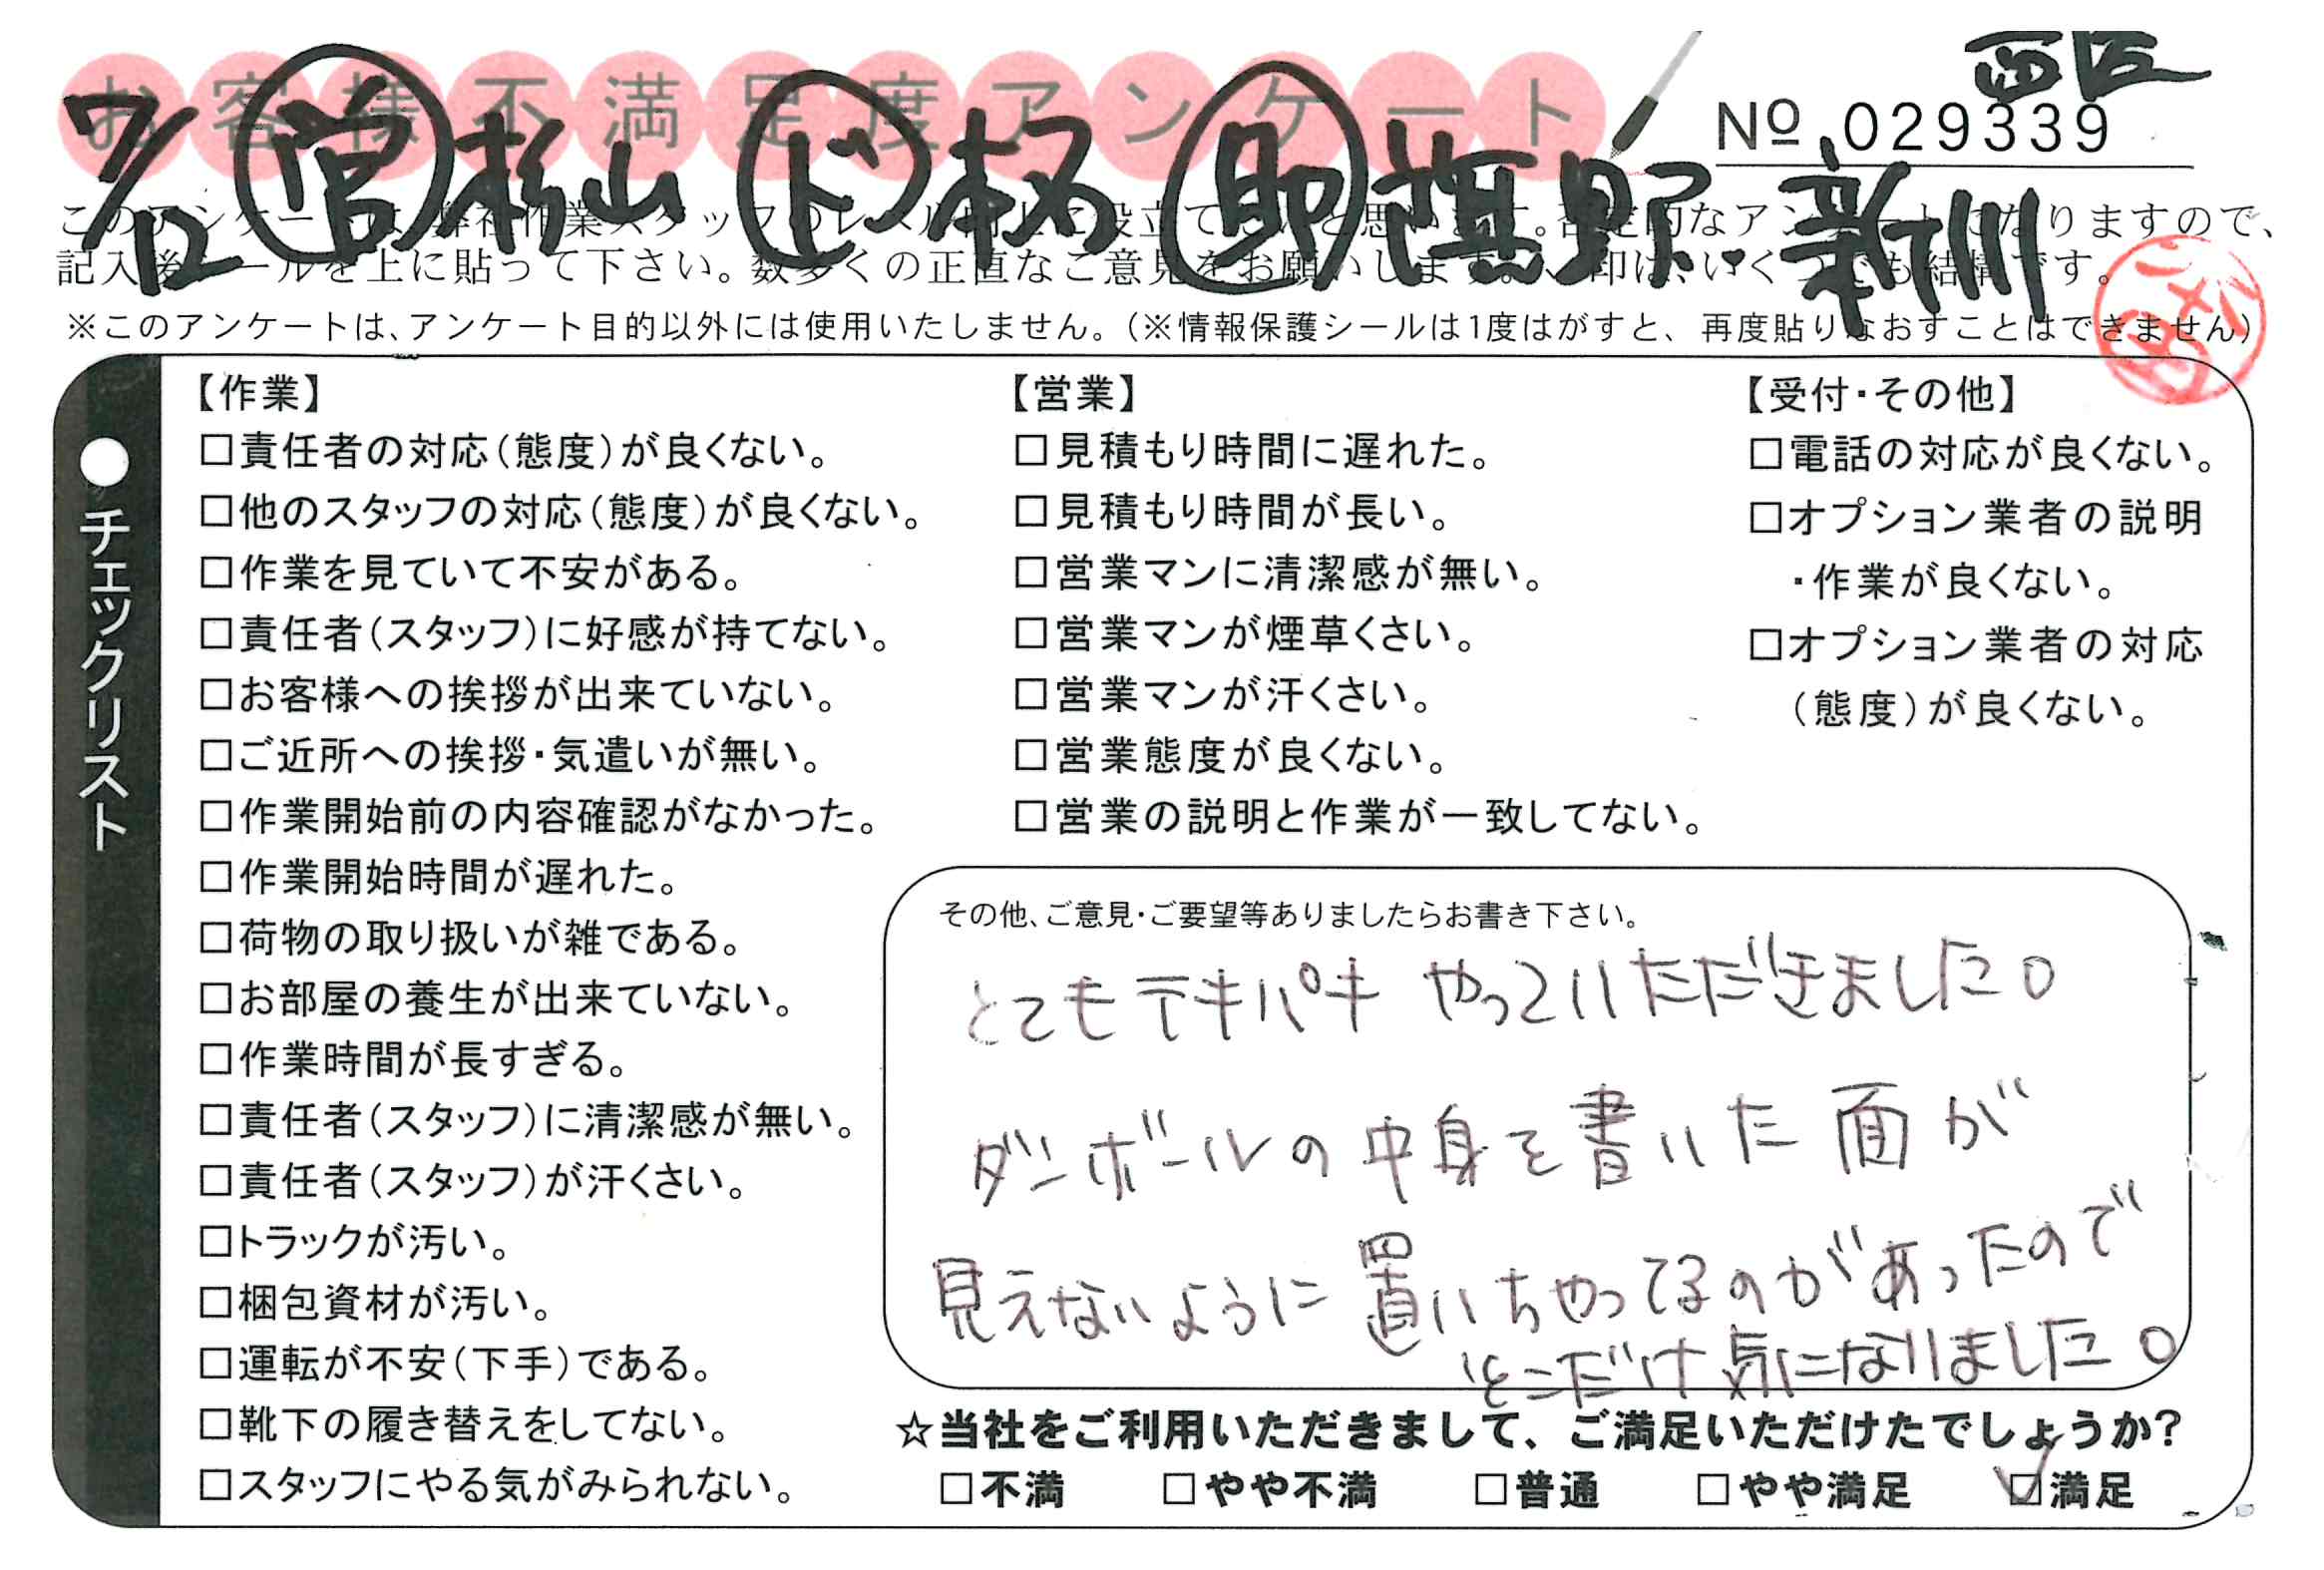 お客様不満足度アンケート
西区
№ 029339
7/12 営 杉山 ド 格 助 濱野・新洲
このアンケートは、弊社作業スタッフのレベル向上に役立てたいと思います。否定的なアンケートになりますので、
記入後シールを上に貼って下さい。数多くの正直なご意見をお願いします。✓印は、いくつでも結構です。
※このアンケートは、アンケート目的以外には使用いたしません。（※情報保護シールは1度はがすと、再度貼りなおすことはできません）
●チェックリスト
【作業】
□責任者の対応（態度）が良くない。
□他のスタッフの対応（態度）が良くない。
□作業を見ていて不安がある。
□責任者（スタッフ）に好感が持てない。
□お客様への挨拶が出来ていない。
□ご近所への挨拶・気遣いが無い。
□作業開始前の内容確認がなかった。
□作業開始時間が遅れた。
□荷物の取り扱いが雑である。
□お部屋の養生が出来ていない。
□作業時間が長すぎる。
□責任者（スタッフ）に清潔感が無い。
□責任者（スタッフ）が汗くさい。
□トラックが汚い。
□梱包資材が汚い。
□運転が不安（下手）である。
□靴下の履き替えをしてない。
□スタッフにやる気がみられない。
【営業】
□見積もり時間に遅れた。
□見積もり時間が長い。
□営業マンに清潔感が無い。
□営業マンが煙草くさい。
□営業マンが汗くさい。
□営業態度が良くない。
□営業の説明と作業が一致してない。
【受付・その他】
□電話の対応が良くない。
□オプション業者の説明
・作業が良くない。
□オプション業者の対応
（態度）が良くない。
その他、ご意見・ご要望等ありましたらお書き下さい。
とてもテキパキ やっていただきました。
ダンボールの中身を書いた面が
見えないように置いちゃってるのがあったので
そこだけ気になりました。
☆当社をご利用いただきまして、ご満足いただけたでしょうか？
□不満 □やや不満 □普通 □やや満足 ☑満足